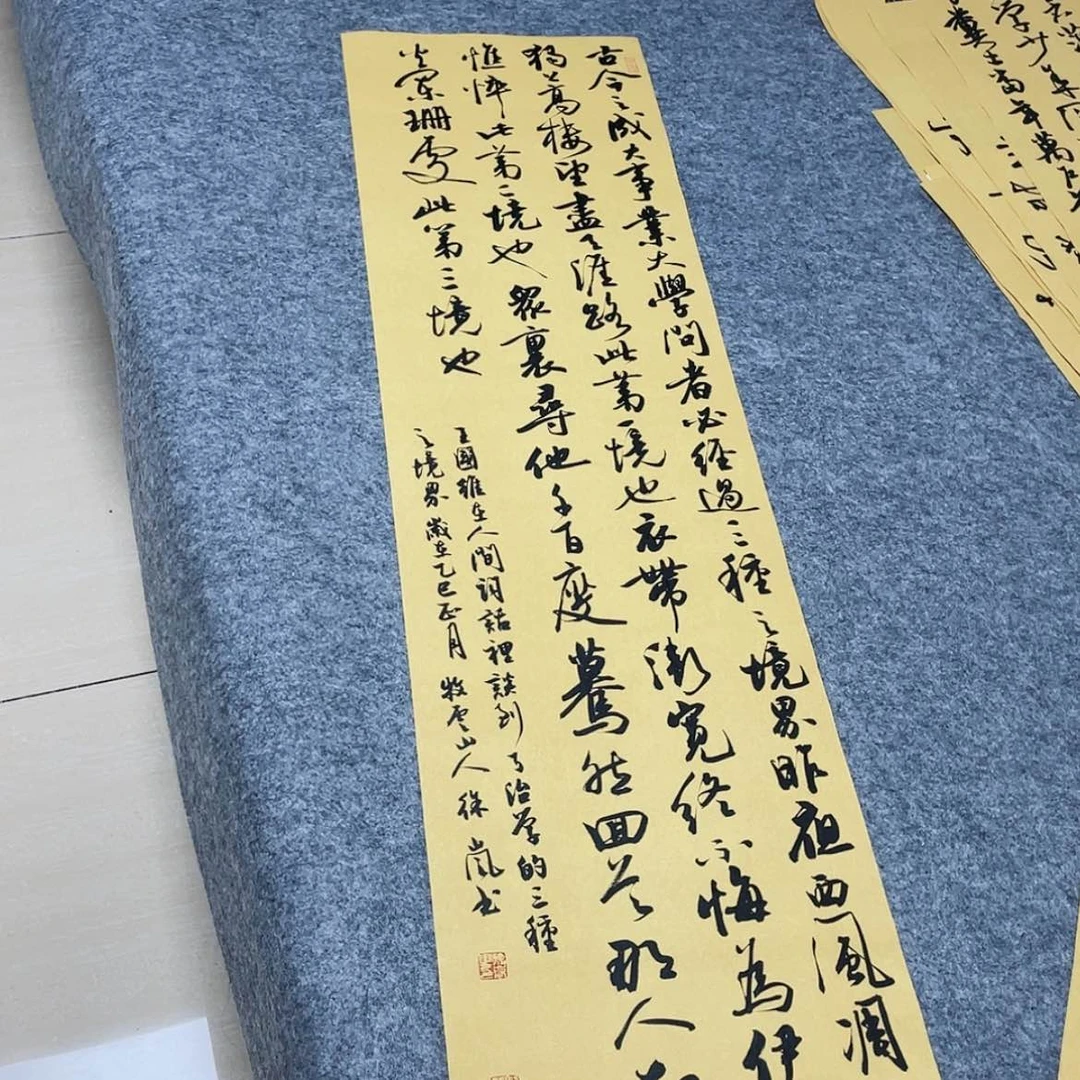 古今之成大事業大學問者必經過三種之境界昨夜西風凋
獨上高樓望盡天涯路此第一境也衣帶漸寬終不悔為伊
憔悴此第二境也眾裏尋他千百度驀然回首那人
火闌珊處此第三境也
王國維在人間詞話裡談到了治學的三種
之境界歲在乙巳正月 牧雲山人 徐嵐书